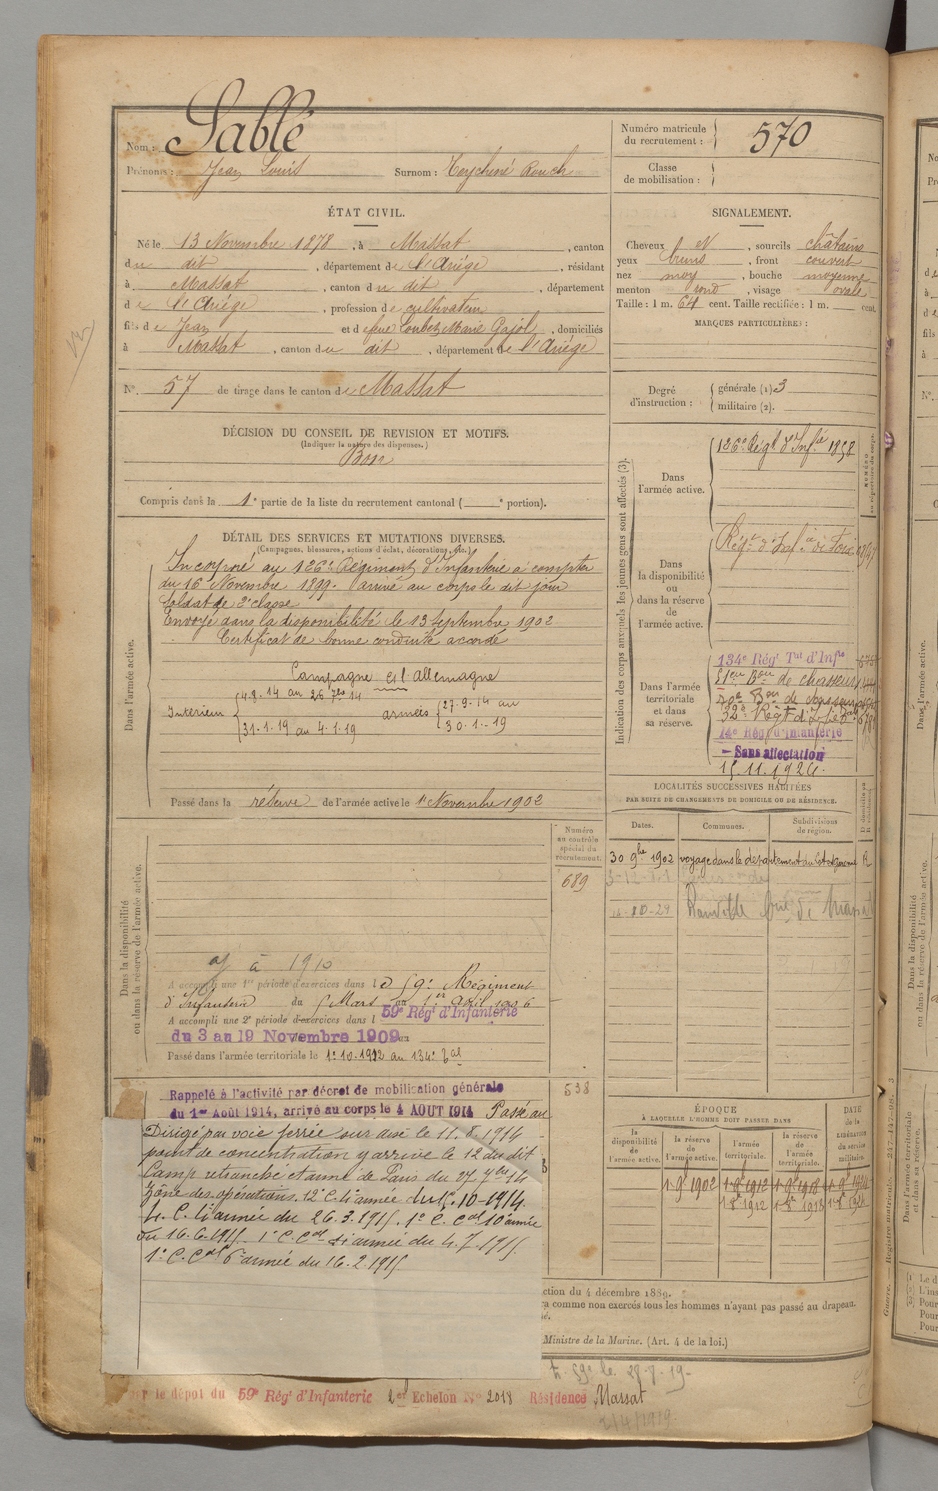 Nom : Sablé
Prénoms : Jean Louis Surnom : Teychiné Rouch
Numéro matricule du recrutement : 570
Classe de mobilisation :
ÉTAT CIVIL.
Né le 13 Novembre 1878, à Massat, canton
du dit, département de l'Ariège, résidant
à Massat, canton du dit, département
de l'Ariège, profession de cultivateur
fils de Jean et de feue Loubet Marie Gajol, domiciliés
à Massat, canton du dit, département de l'Ariège
N° 57 de tirage dans le canton de Massat
SIGNALEMENT.
Cheveux et, sourcils châtains
yeux bruns, front couvert
nez moy, bouche moyenne
menton rond, visage ovale
Taille : 1 m. 64 cent. Taille rectifiée : 1 m. cent.
MARQUES PARTICULIÈRES :
Degré d'instruction : générale (1) 3
militaire (2).
DÉCISION DU CONSEIL DE REVISION ET MOTIFS.
(Indiquer la nature des dispenses.)
Bon
Compris dans la 1e partie de la liste du recrutement cantonal ( e portion).
DÉTAIL DES SERVICES ET MUTATIONS DIVERSES.
(Campagnes, blessures, actions d'éclat, décorations, etc.)
Dans l'armée active.
Incorporé au 126e Régiment d'Infanterie à compter
du 16 Novembre 1899. arrivé au corps le dit jour
soldat de 2e classe
Envoyé dans la disponibilité le 13 Septembre 1902
Certificat de bonne conduite accordé
Campagne c/ l'allemagne
Intérieur 4.8.14 au 26 7bre 14
31.1.19 au 4.1.19
armées 27-9-14 au
30-1-19
Passé dans la réserve de l'armée active le 1er Novembre 1902
Indication des corps auxquels les jeunes gens sont affectés (3).
Dans l'armée active.
126e Régt d'Infie 1858
Dans la disponibilité ou dans la réserve de l'armée active.
Régt d'Infie de Foix
Dans l'armée territoriale et dans sa réserve.
134e Régt Tal d'Infie
51eme Bon de chasseurs
32e Régt d'Infie
14e Rég. d'Infanterie
- Sans affectation
15.11.1926.
LOCALITÉS SUCCESSIVES HABITÉES
PAR SUITE DE CHANGEMENTS DE DOMICILE OU DE RÉSIDENCE.
Dates. Communes. Subdivisions de région.
30 9bre 1902 voyage dans le département du Lot et Garonne R
Dans la disponibilité ou dans la réserve de l'armée active.
Numéro au contrôle spécial du recrutement.
689
A accompli une 1re période d'exercices dans le 59e Régiment
d'Infanterie du 5 Mars au 1er Avril 1906
A accompli une 2e période d'exercices dans l 59e Régt d'Infanterie
du 3 au 19 Novembre 1909 au
Passé dans l'armée territoriale le 1.10.1912 au 134e tal
538
Rappelé à l'activité par décret de mobilisation générale
du 1er Août 1914, arrivé au corps le 4 AOUT 1914 Passé au
Dirigé par voie ferrée sur le 11.8.1914
point de concentration y arrivé le 12 du dit
Camp retranché et armé de Paris du 27 7bre 14
Zône des opérations. 12e C. 4e année du 15.10-1914.
4. C. 4e année du 26.3.1915. 1e C. Cal 10e année
du 16.6.1915. 1e C. Cal 4e année du 4.7.1915.
1e C. Cal 6e année du 16.2.1915
ÉPOQUE
À LAQUELLE L'HOMME DOIT PASSER DANS
la disponibilité de l'armée active. la réserve de l'armée active. l'armée territoriale. la réserve de l'armée territoriale.
DATE de la LIBÉRATION du service militaire.
1-9e 1902 1-9e 1912 1-9e 1918
1-8e 1912 1-8e 1918
ction du 4 décembre 1889.
comme non exercés tous les hommes n'ayant pas passé au drapeau.
Ministre de la Marine. (Art. 4 de la loi.)
r le dépôt du 59e Régt d'Infanterie 2e Echelon N° 2018 Résidence Massat